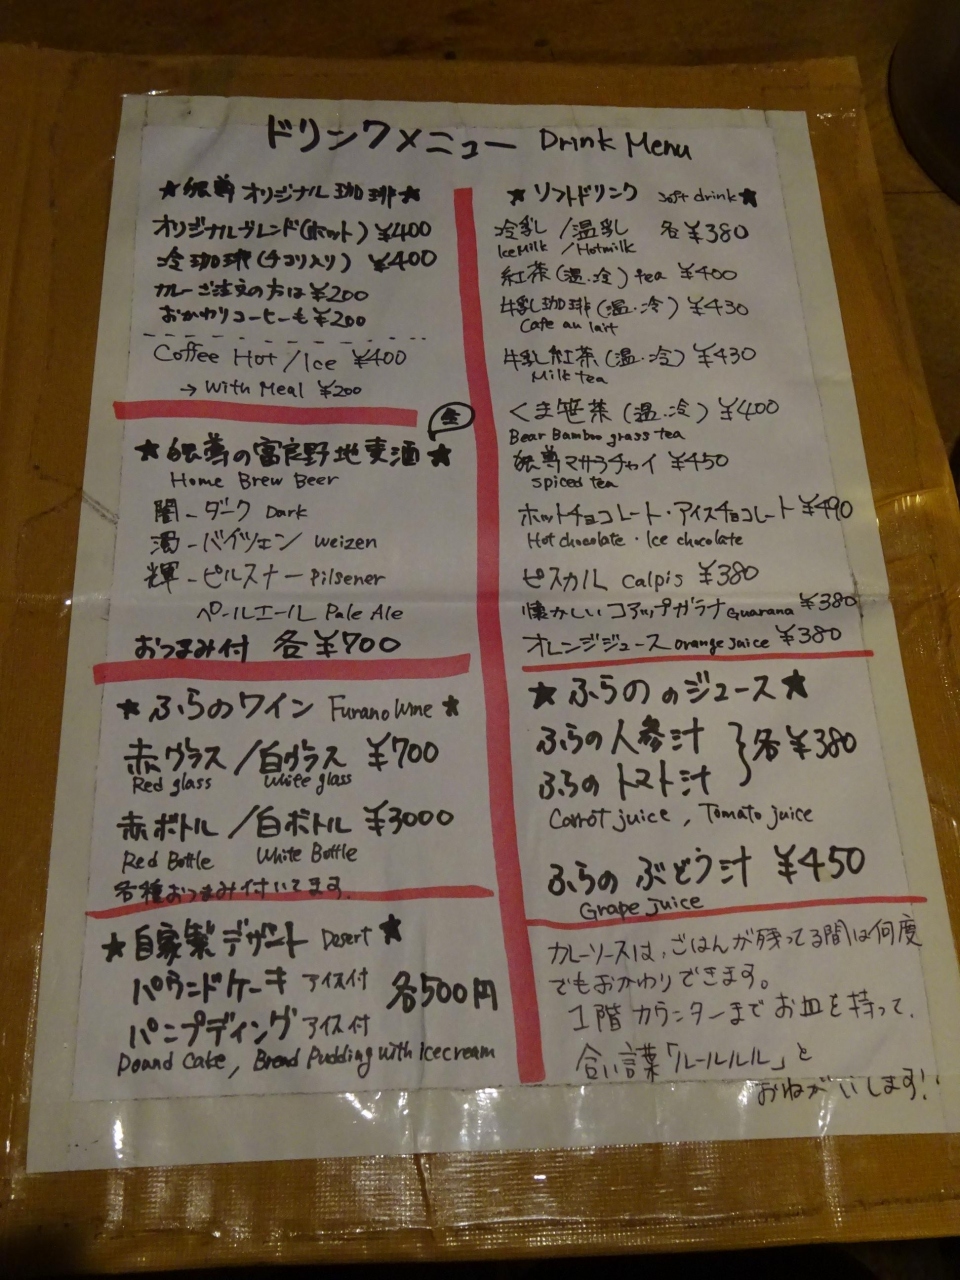 ドリンクメニュー Drink Menu
★唯我独尊オリジナル珈琲★
オリジナルブレンド(ホット) ¥400
冷珈琲(チコリ入り) ¥400
カレーご注文の方は¥200
おかわりコーヒーも¥200
Coffee Hot / Ice ¥400
→ With Meal ¥200
生
の富良野地麦酒★
Home Brew Beer
闇-ダーク Dark
濁-バイツェン Weizen
輝-ピルスナー Pilsener
ペールエール Pale Ale
おつまみ付 各¥700
★ふらのワイン Furano Wine★
赤グラス/白グラス ¥700
Red glass White glass
赤ボトル/白ボトル ¥3000
Red Bottle White Bottle
各種おつまみ付いてます.
★自家製デザート Desert★
パウンドケーキ アイス付
各500円
パンプディング アイス付
Pound Cake, Bread Pudding with Icecream
★ソフトドリンク soft drink★
冷乳/温乳 各¥380
Ice Milk / Hotmilk
紅茶(温.冷) tea ¥400
牛乳珈琲(温.冷) ¥430
Cafe au lait
牛乳紅茶(温.冷) ¥430
Milk tea
くま笹茶(温.冷) ¥400
Bear Bamboo grass tea
マサラチャイ ¥450
spiced tea
ホットチョコレート・アイスチョコレート ¥490
Hot chocolate・Ice chocolate
ピスカル calpis ¥380
懐かしいコアップガラナ Guarana ¥380
オレンジジュース orange juice ¥380
★ふらののジュース★
ふらの人参汁
各¥380
ふらのトマト汁
Carrot juice, Tomato juice
ふらのぶどう汁 ¥450
Grape juice
カレーソースは、ごはんが残ってる間は何度
でもおかわりできます。
1階カウンターまでお皿を持って、
合い言葉「ルールルル」と
おねがいします!